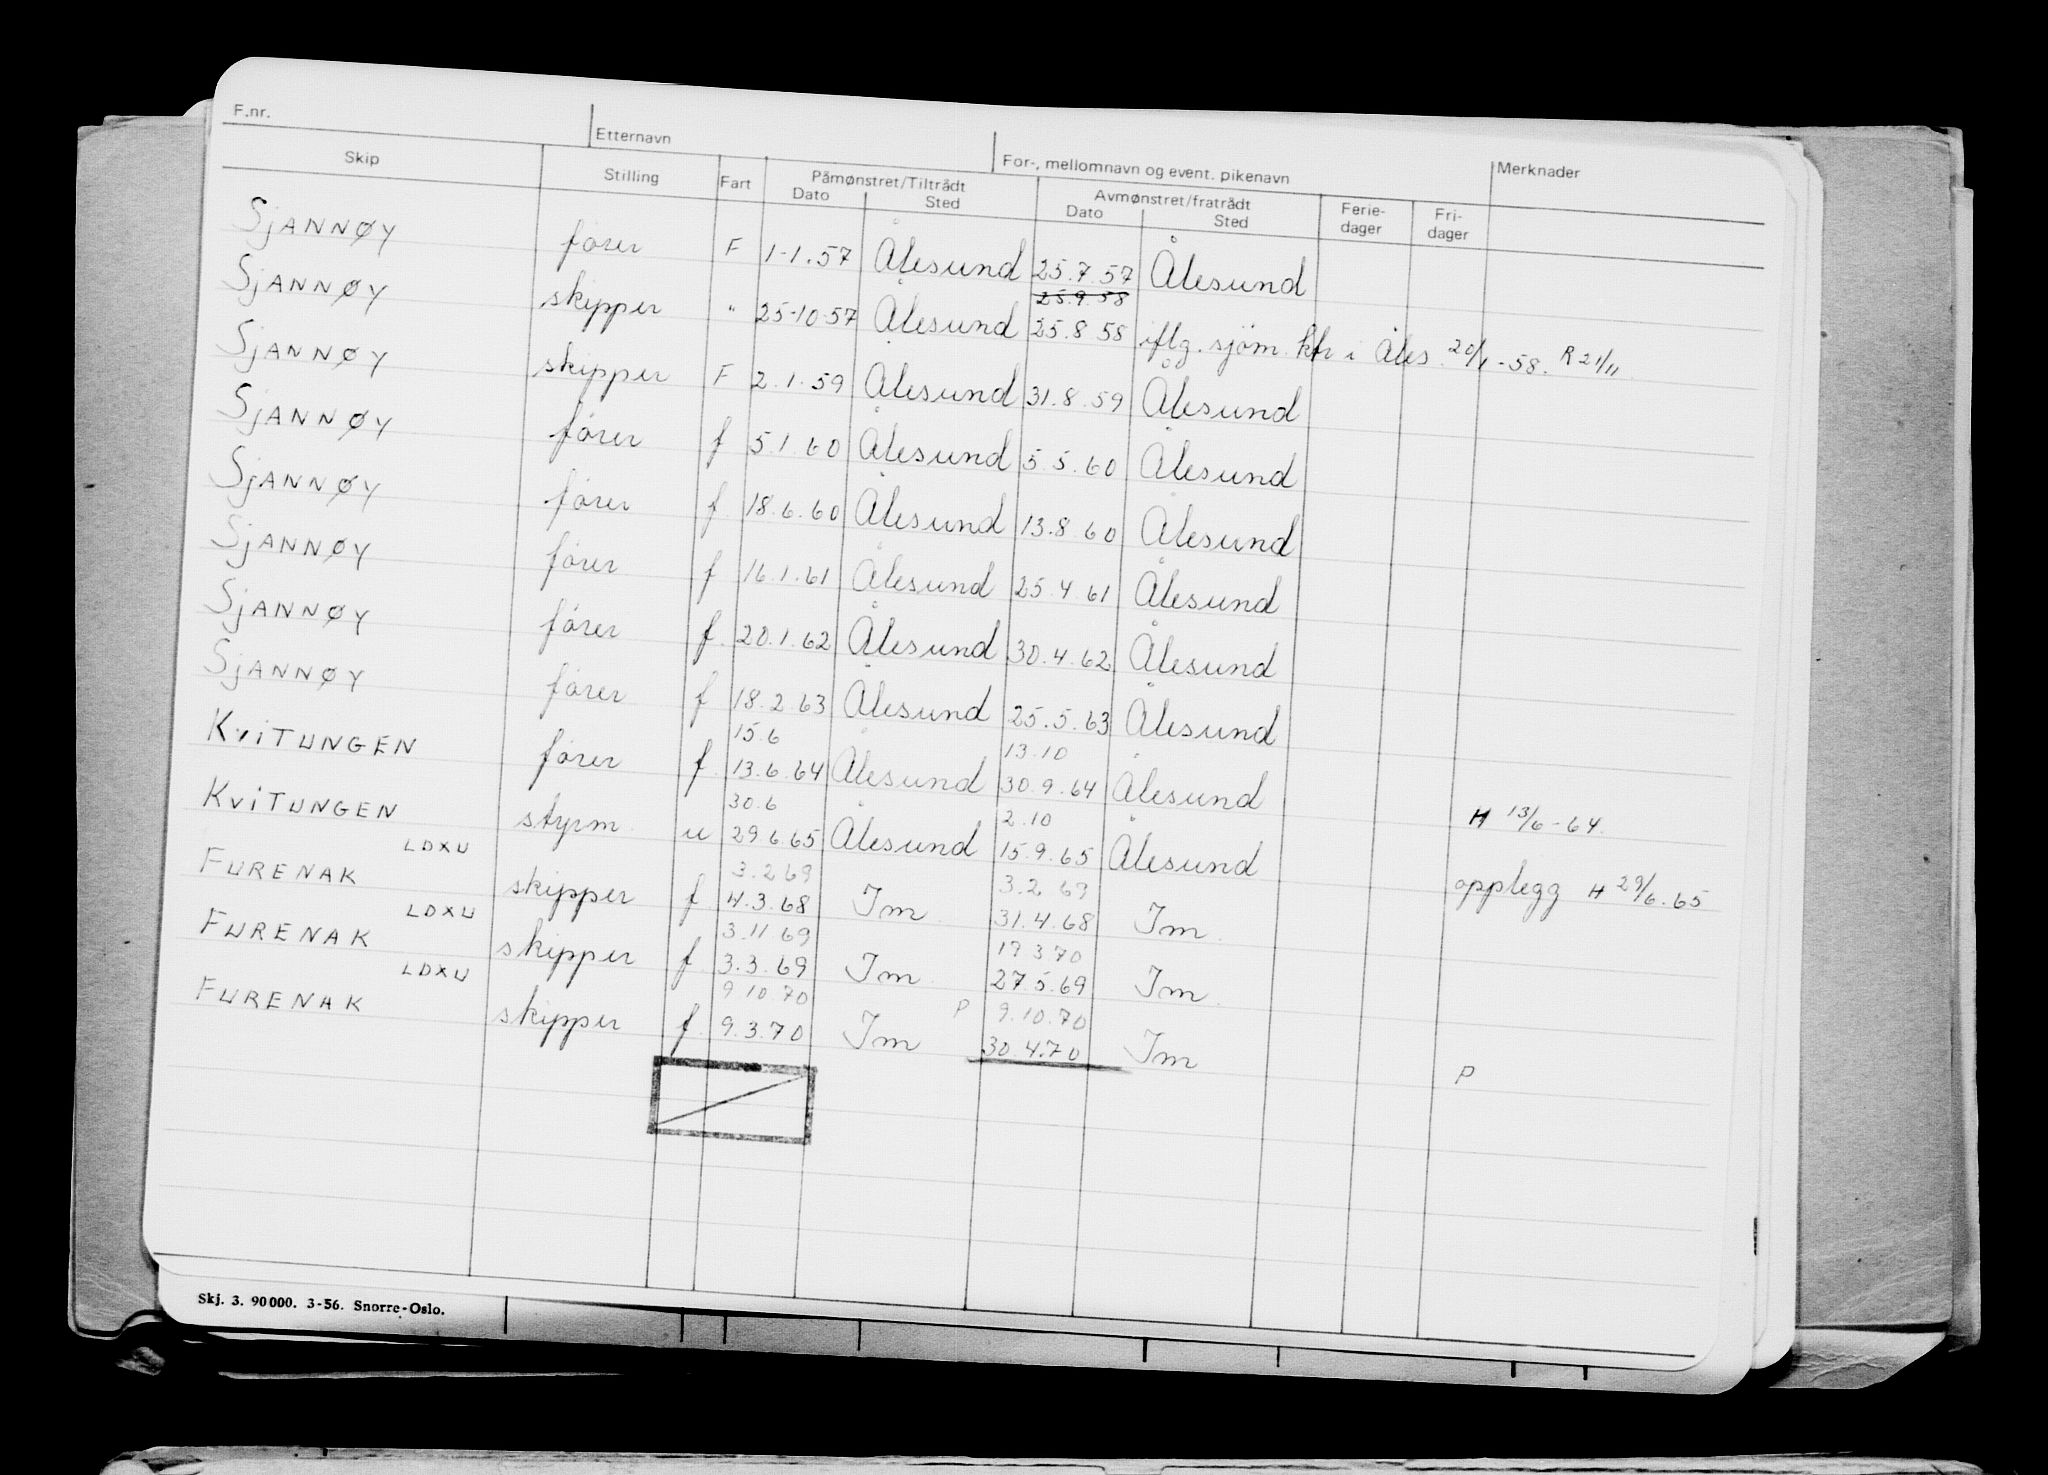 F.nr. Etternavn For-, mellomnavn og event. pikenavn Merknader
Skip Stilling Fart Påmønstret/Tiltrådt Avmønstret/fratrådt Ferie-dager Fri-dager
Dato Sted Dato Sted
SjANNØY fører F 1-1.57 Ålesund 25.7.57 Ålesund
25.9.58
SjANNØY skipper " 25-10-57 Ålesund 25.8 58 iflg. sjøm. ktr i Åles. 20/11-58. R 21/11.
SjANNØY skipper F 2.1.59 Ålesund 31.8.59 Ålesund
SjANNØY fører f 5.1.60 Ålesund 5.5.60 Ålesund
SjANNØY fører f 18.6.60 Ålesund 13.8 60 Ålesund
SjANNØY fører f 16.1.61 Ålesund 25.4 61 Ålesund
SjANNØY fører f. 20.1.62 Ålesund 30.4.62 Ålesund
SjANNØY fører f 18.2.63 Ålesund 25.5.63 Ålesund
15.6 13.10
KviTUNGEN fører f. 13.6.64 Ålesund 30.9.64 Ålesund H 13/6-64.
30.6 2.10
KviTUNGEN styrm. u 29.6.65 Ålesund 15.9.65 Ålesund opplegg H 29/6.65
LDXU 3.2 69 3.2 69
FURENAK skipper f. 4.3.68 Im. 31.4.68 Im.
LDXU 3.11 69 17 3.70
FURENAK skipper f. 3.3.69 Im. 27.5.69 Im.
LDXU 9 10.70 P 9.10.70
FURENAK skipper f. 9.3.70 Im 30 4.70 Im P
Skj. 3. 90000. 3-56. Snorre-Oslo.